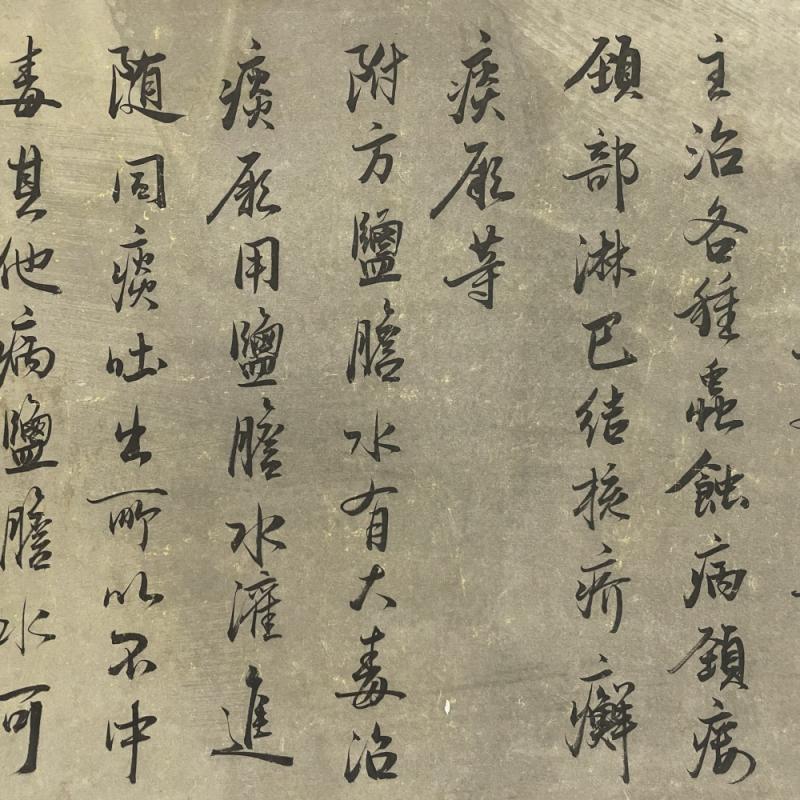 主治各種蟲蝕病頸瘻
頸部淋巴結核疥癬
痰厥等
附方鹽膽水有大毒治
痰厥用鹽膽水灌進
随同痰吐出所以不中
毒其他病鹽膽水可